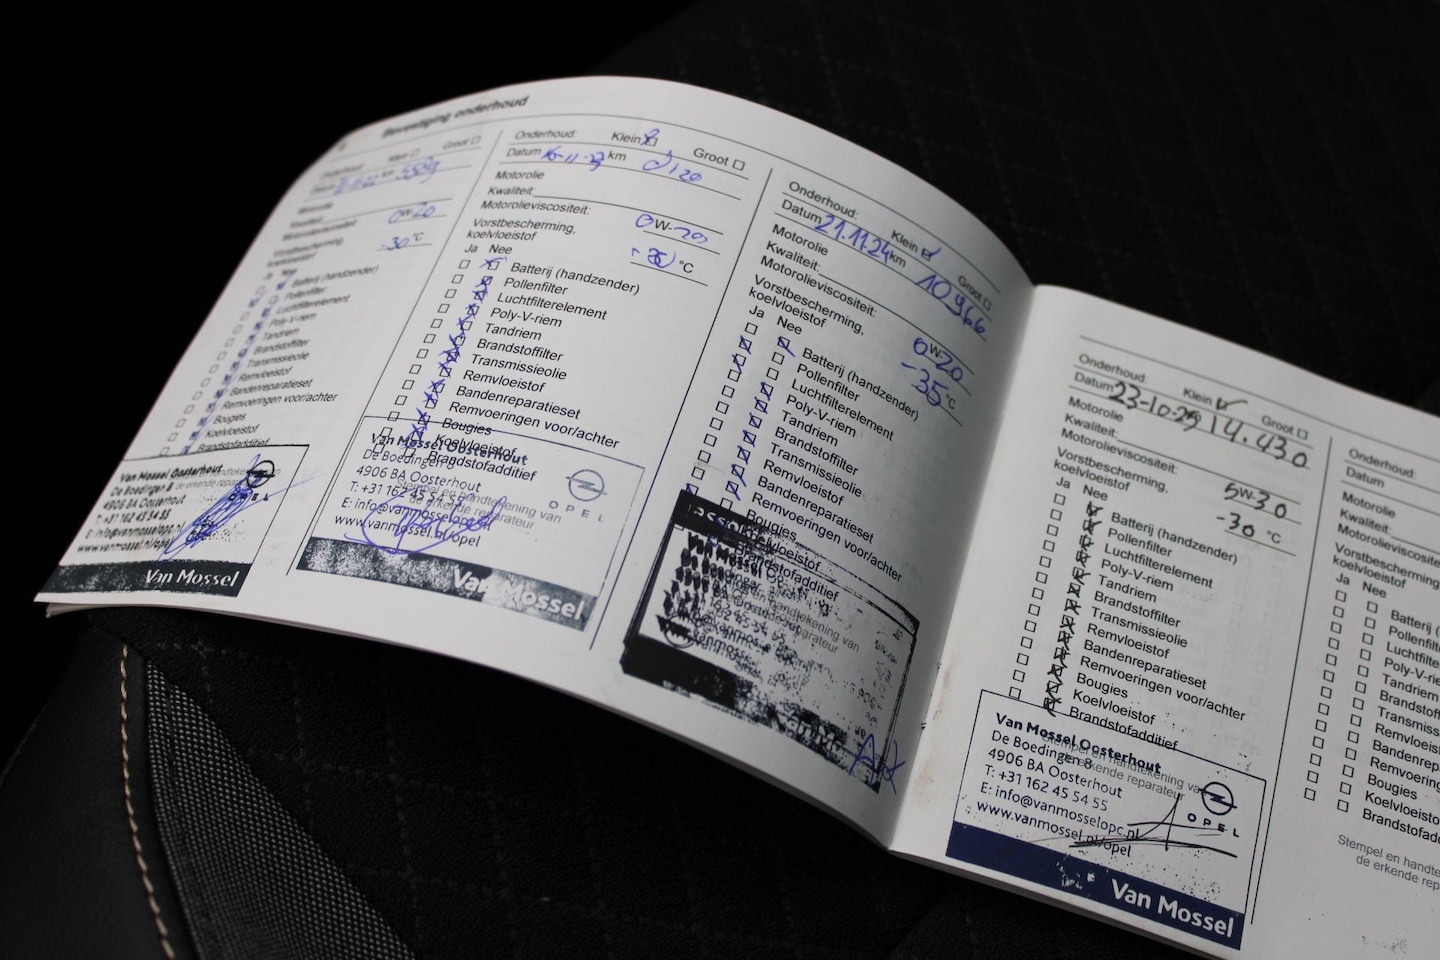 Bevestiging onderhoud
Onderhoud Klein Groot
Datum km
Kwaliteit:
Motorolieviscositeit:
0W-20
Vorstbescherming
koelvloeistof -30 °C
Ja Nee
Batterij (handzender)
Pollenfilter
Luchtfilterelement
Poly-V-riem
Tandriem
Brandstoffilter
Transmissieolie
Remvloeistof
Bandenreparatieset
Remvoeringen voor/achter
Bougies
Koelvloeistof
Brandstofadditief
Van Mossel Oosterhout
De Boedingen 8
4906 BA Oosterhout
T: +31 162 45 54 55
E: info@vanmosselopc.nl
www.vanmossel.nl/opel
OPEL
Van Mossel
Onderhoud: Klein Groot
Datum 16-11-23 km
Motorolie
Kwaliteit:
Motorolieviscositeit:
0W-20
Vorstbescherming,
koelvloeistof °C
Ja Nee
Batterij (handzender)
Pollenfilter
Luchtfilterelement
Poly-V-riem
Tandriem
Brandstoffilter
Transmissieolie
Remvloeistof
Bandenreparatieset
Remvoeringen voor/achter
Bougies
Koelvloeistof
Brandstofadditief
Stempel en handtekening van
de erkende reparateur
Van Mossel Oosterhout
De Boedingen 8
4906 BA Oosterhout
T: +31 162 45 54 55
E: info@vanmosselopc.nl
www.vanmossel.nl/opel
OPEL
Van Mossel
Onderhoud: Klein Groot
Datum 21.11.24 km 10966
Motorolie
Kwaliteit:
Motorolieviscositeit:
0W-20
Vorstbescherming,
koelvloeistof -35 °C
Ja Nee
Batterij (handzender)
Pollenfilter
Luchtfilterelement
Poly-V-riem
Tandriem
Brandstoffilter
Transmissieolie
Remvloeistof
Bandenreparatieset
Remvoeringen voor/achter
Bougies
Koelvloeistof
Brandstofadditief
Onderhoud Klein Groot
Datum 23-10-25 14.430
Motorolie
Kwaliteit:
Motorolieviscositeit:
5W-30
Vorstbescherming,
koelvloeistof -30 °C
Ja Nee
Batterij (handzender)
Pollenfilter
Luchtfilterelement
Poly-V-riem
Tandriem
Brandstoffilter
Transmissieolie
Remvloeistof
Bandenreparatieset
Remvoeringen voor/achter
Bougies
Koelvloeistof
Brandstofadditief
Stempel en handtekening van
de erkende reparateur
Van Mossel Oosterhout
De Boedingen 8
4906 BA Oosterhout
T: +31 162 45 54 55
E: info@vanmosselopc.nl
www.vanmossel.nl/opel
OPEL
Van Mossel
Onderhoud:
Datum
Motorolie
Kwaliteit:
Motorolieviscositeit
Vorstbescherming
koelvloeistof
Ja Nee
Batterij
Pollenfil
Luchtfilte
Poly-V-rie
Tandriem
Brandstof
Transmiss
Remvloeist
Bandenrepa
Remvoering
Bougies
Koelvloeisto
Brandstofad
Stempel en handte
de erkende rep